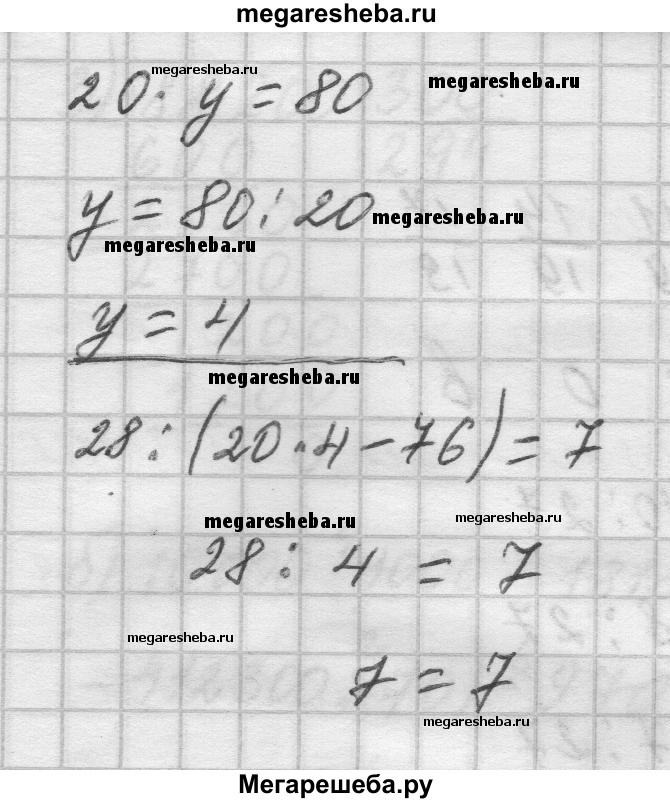 megaresheba.ru
megaresheba.ru
20 · y = 80
megaresheba.ru
y = 80 : 20
megaresheba.ru
megaresheba.ru
y = 4
megaresheba.ru
28 : (20 · 4 - 76) = 7
megaresheba.ru
megaresheba.ru
28 : 4 = 7
megaresheba.ru
7 = 7
megaresheba.ru
Мегарешеба.ру